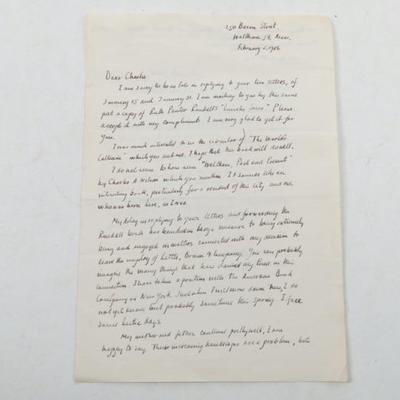 250 Beaver Street,
Waltham 54, Mass.
February 5, 1956
Dear Charlie
I am sorry to be so late in replying to your two letters, of
January 15 and January 31. I am mailing to you by this same
post a copy of Ruth Painter Randall's "Lincoln's Sons". Please
accept it with my compliments. I am very glad to get it for
you.
I was much interested to see the circular of "The World's
Collectors" which you sent me. I hope that this book will do well.
I do not seem to have seen "Waltham, Past and Present"
by Charles A. Nelson which you mention. It sounds like an
interesting book, particularly for a resident of this city and one
who was born here, as I was.
My delay in replying to your letters and forwarding the
Randall book has been due to my being extremely
busy and engaged in matters connected with my decision to
leave the employ of Little, Brown & Company. You can probably
imagine the many things that have claimed my time in this
connection. I have taken a position with the American Book
Company in New York. Just when I will move there, I do
not yet know but probably sometime this spring. I face
some hectic days.
My mother and father continue pretty well, I am
happy to say. Their increasing are a problem, both